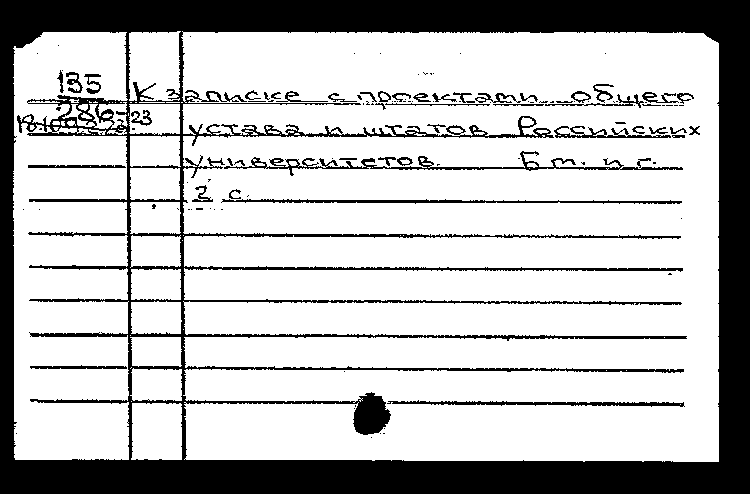 135
К записке с проектами общего
286-23
устава и штатов Российских
университетов. Б м. и г.
2 с.